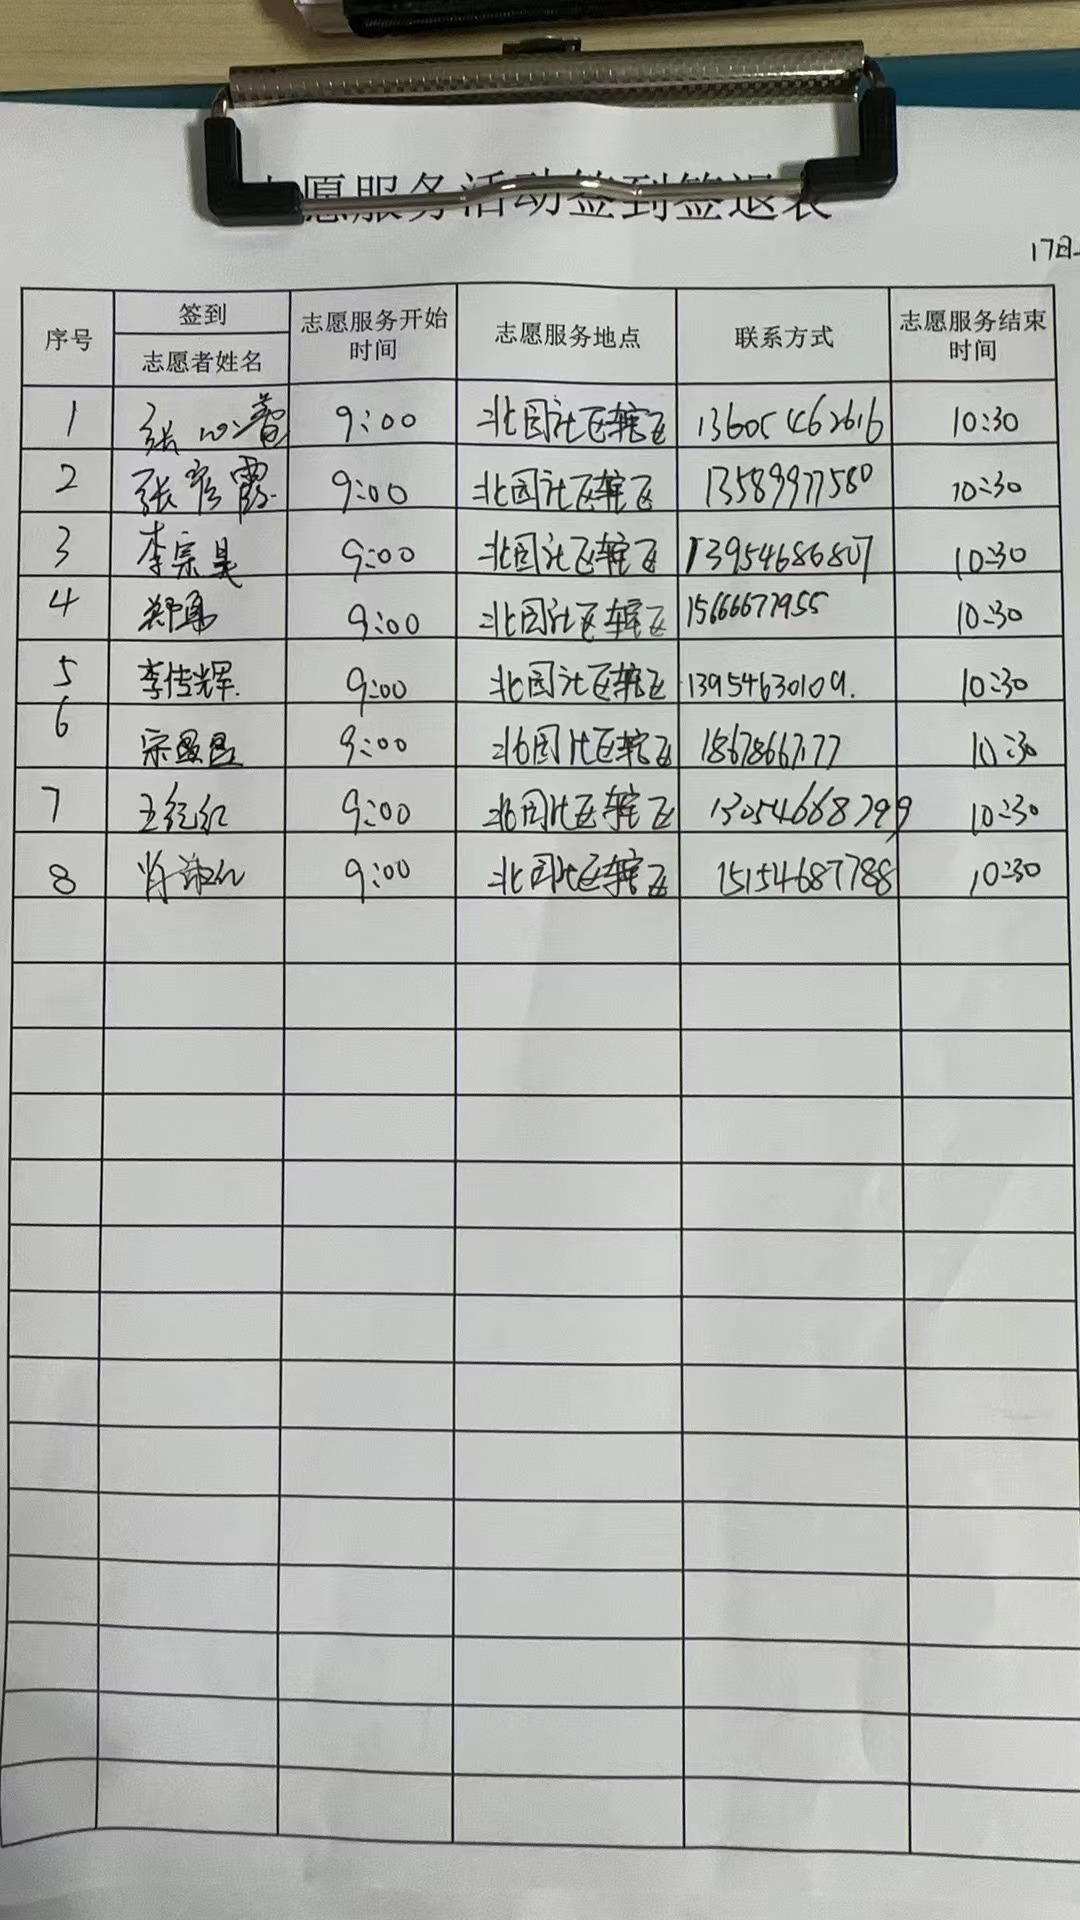 志愿服务活动签到签退表
17日
序号 签到 志愿者姓名 志愿服务开始时间 志愿服务地点 联系方式 志愿服务结束时间
1 张 9:00 北园社区辖区 13605462616 10:30
2 张彦霞 9:00 北园社区辖区 13589977580 10:30
3 李宗昊 9:00 北园社区辖区 13954686807 10:30
4 郑 9:00 北园社区辖区 15666677955 10:30
5 李传辉 9:00 北园社区辖区 13954630109. 10:30
6 宗 9:00 北园社区辖区 10:30
7 王红红 9:00 北园社区辖区 13054668799 10:30
8 肖 9:00 北园社区辖区 15154687788 10:30